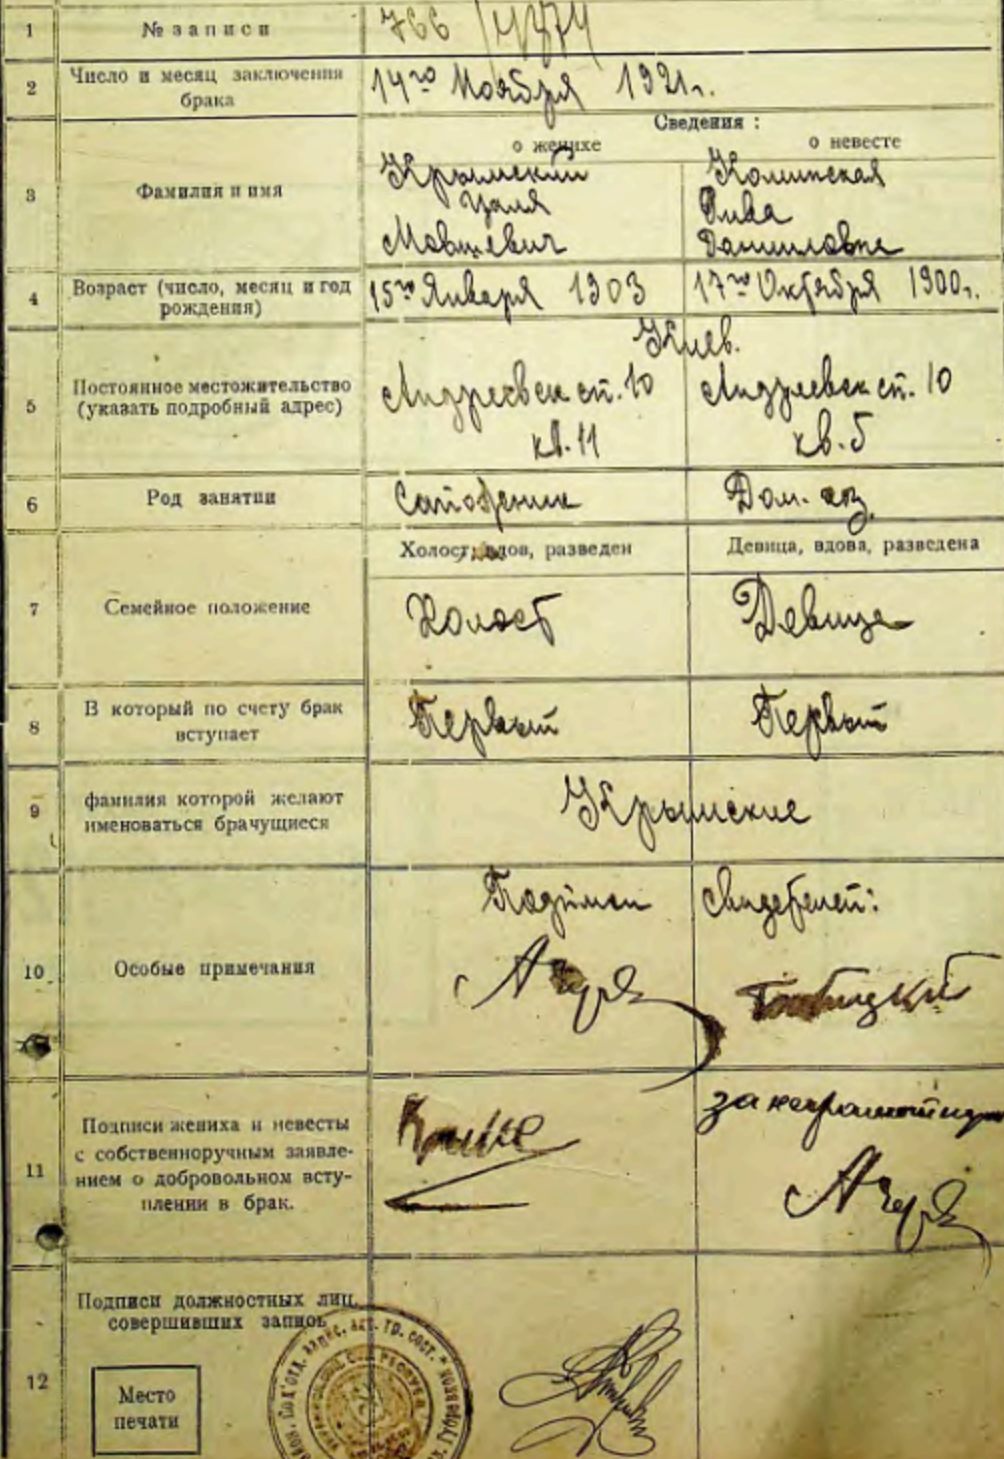 1 № записи 766
2 Число и месяц заключения брака 14го Ноября 1921г.
Сведения :
о женихе о невесте
3 Фамилия и имя
Крымский
Цаля
Мовшевич
Дива
Данииловна
4 Возраст (число, месяц и год рождения) 15го Января 1903 17го Октября 1900г.
Киев.
5 Постоянное местожительство (указать подробный адрес)
Андреевск сп. 10 Андреевск сп. 10
кв. 11 кв. 5
6 Род занятии Сапожник Дом. хоз.
Холост, вдов, разведен Девица, вдова, разведена
7 Семейное положение Холост Девица
8 В который по счету брак вступает Первый Первый
9 фамилия которой желают именоваться брачущиеся Крымские
10 Особые примечания
свидетелей:
11 Подписи жениха и невесты
с собственноручным заявле-
нием о добровольном всту-
плении в брак.
за неграмотную
12 Подписи должностных лиц,
совершивших запись
Место
печати